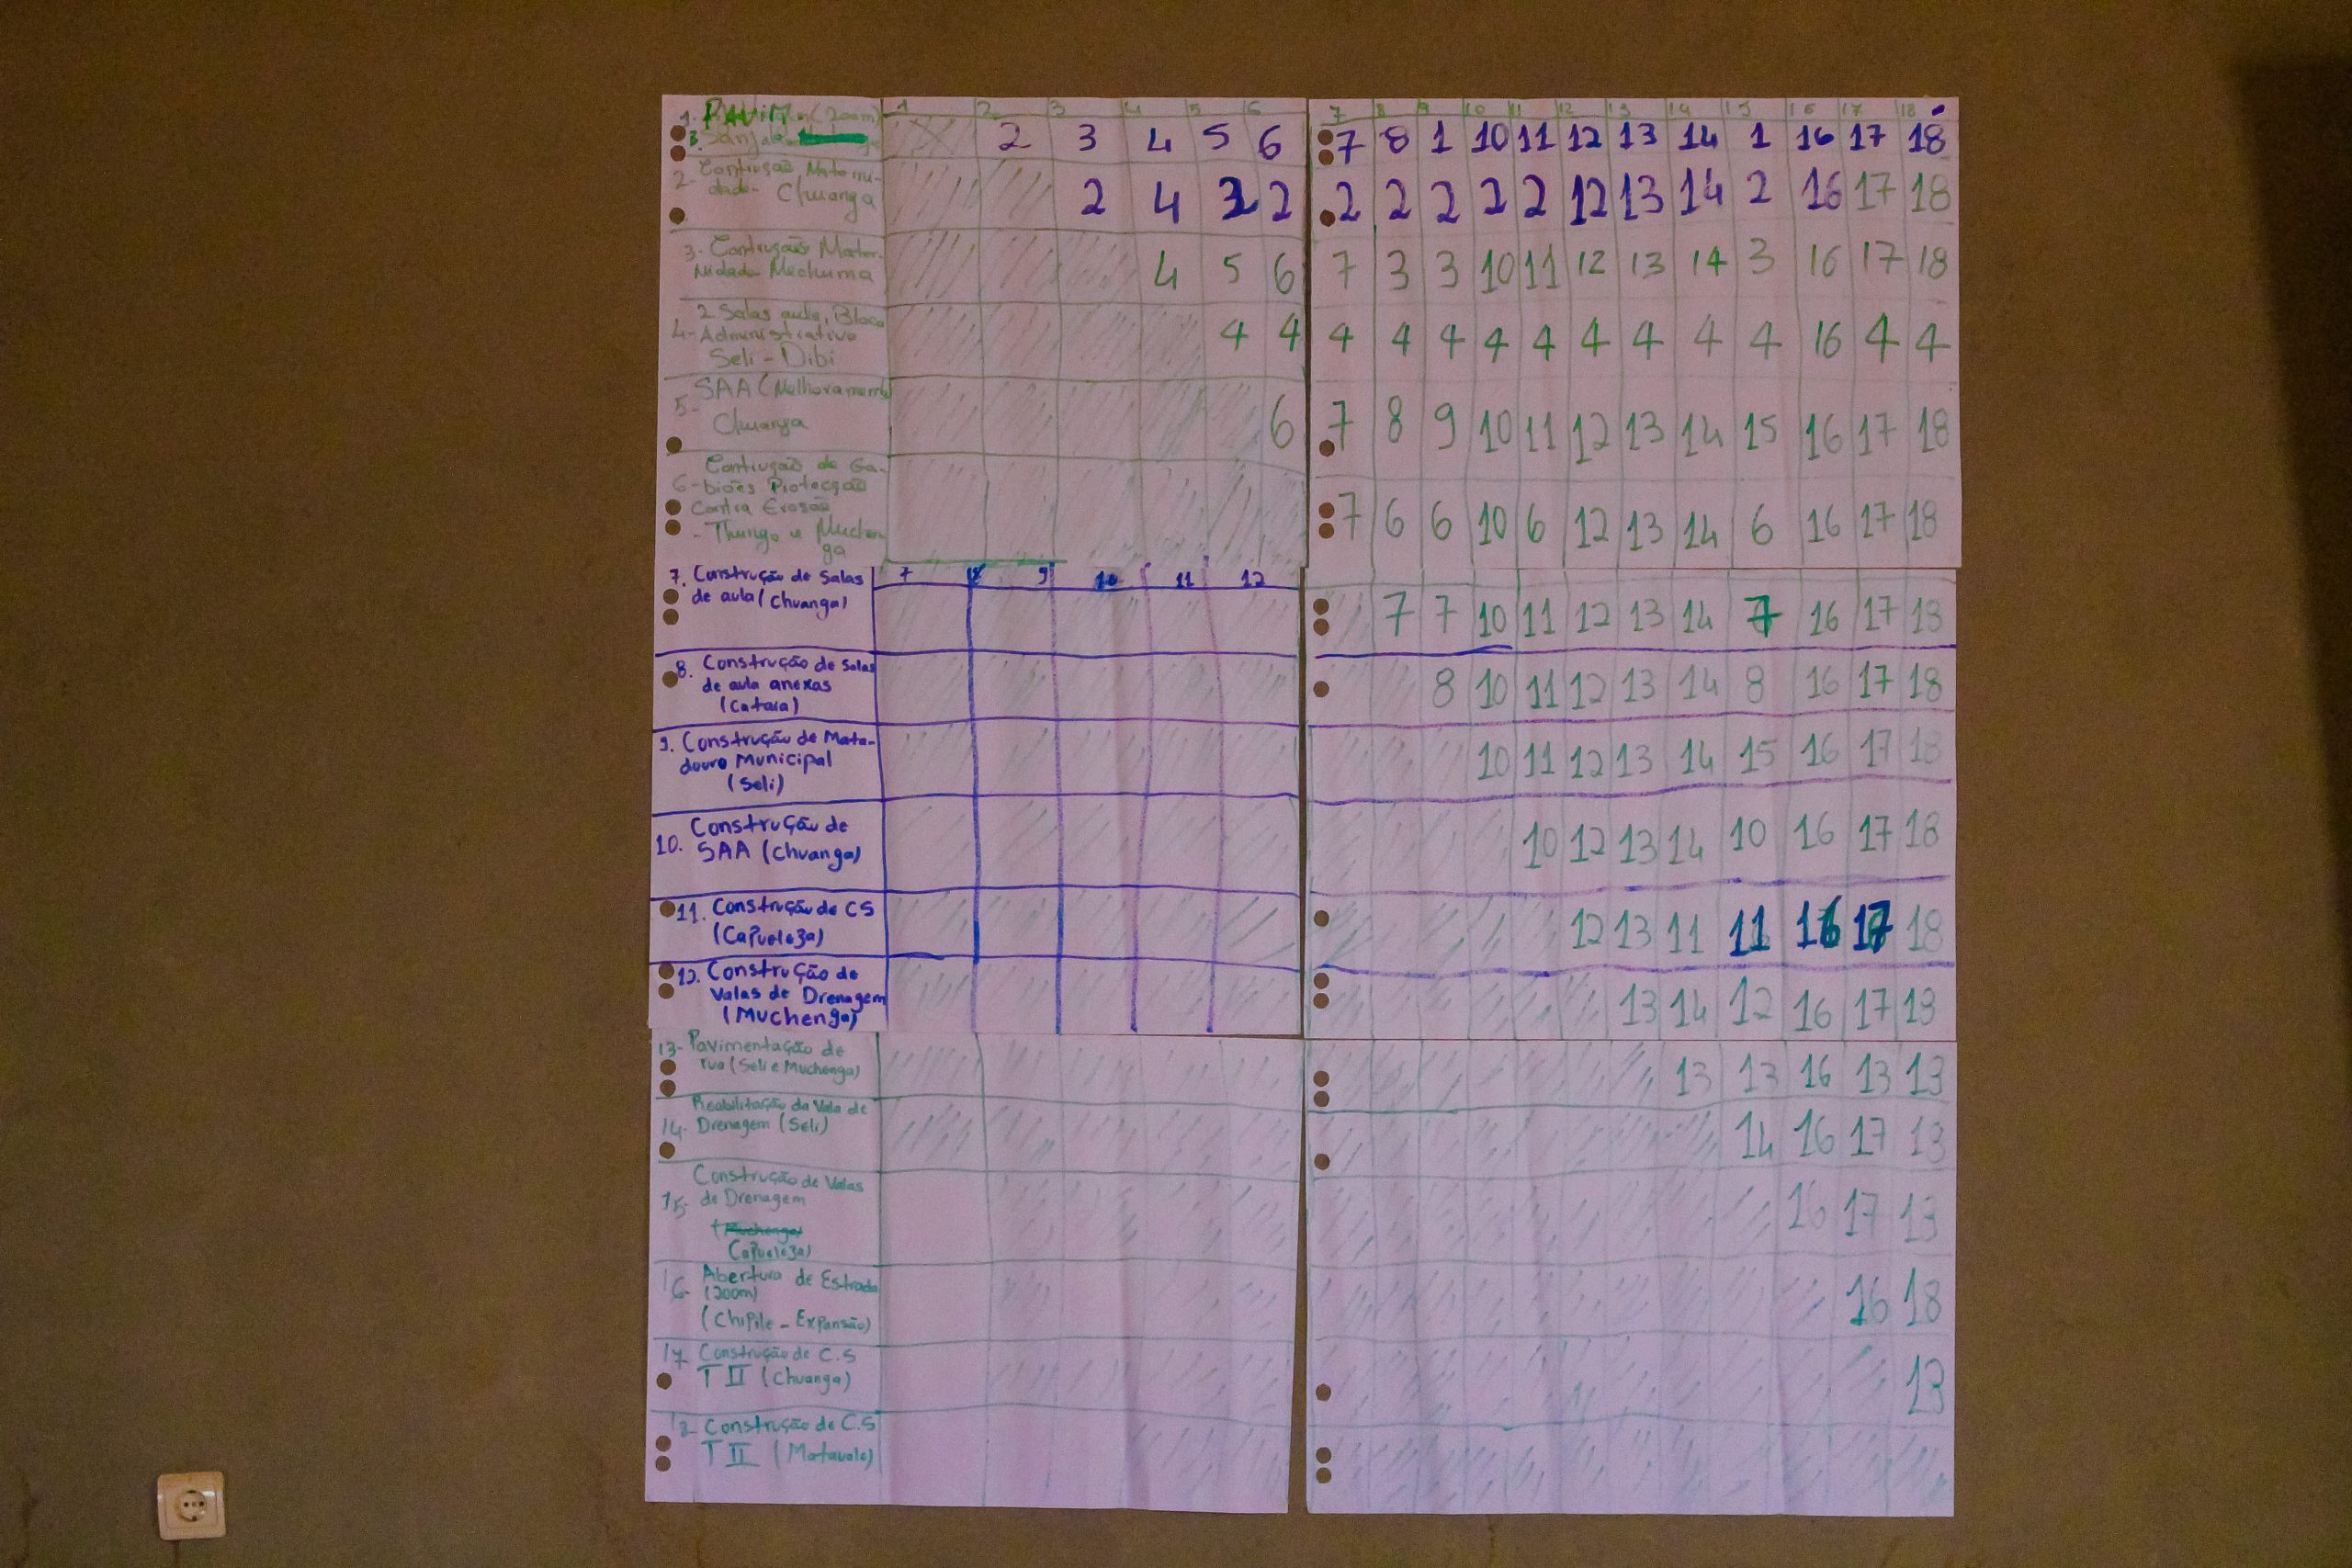 1. PAVIM (200m) 1 2 3 4 5 6 7 8 9 10 11 12 13 14 15 16 17 18
B. 2 3 4 5 6 7 8 1 10 11 12 13 14 1 16 17 18
2- Contrução Materni-
dade- Chuanga 2 4 2 2 2 2 2 2 12 13 14 2 16 17 18
3- Contrução Mater-
nidade Muchuma 4 5 6 7 3 3 10 11 12 13 14 3 16 17 18
2 Salas aula, Bloco
4- Administrativo 4 4 4 4 4 4 4 4 4 4 4 16 4 4
Seli - Dibi
SAA (Melhoramento
5-
Chuanga 6 7 8 9 10 11 12 13 14 15 16 17 18
Contrução de Ga-
6- biões Protecção
Contra Erosão
- Thungo e Muchen- 7 6 6 10 6 12 13 14 6 16 17 18
ga
7. Construção de Salas 7 8 9 10 11 12
de aula (Chuanga) 7 7 10 11 12 13 14 7 16 17 18
8. Construção de Salas
de aula anexas 8 10 11 12 13 14 8 16 17 18
(Cataia)
9. Construção de Mata-
douro Municipal 10 11 12 13 14 15 16 17 18
(Seli)
Construção de
10. SAA (Chuanga) 10 12 13 14 10 16 17 18
11. Construção de CS
(Capueleza) 12 13 11 11 16 17 18
12. Construção de
Valas de Drenagem 13 14 12 16 17 18
(Muchenga)
13- Pavimentação de
rua (Seli e Muchenga) 13 13 16 13 13
Reabilitação da Vala de
14- Drenagem (Seli) 14 16 17 18
Construção de Valas
15- de Drenagem 16 17 13
(Muchenga)
Capueleza)
16- Abertura de Estrada
(200m) 16 18
(Chipile - Expansão)
17 Construção de C.S
T II (Chuanga) 13
18- Construção de C.S
T II (Matavale)